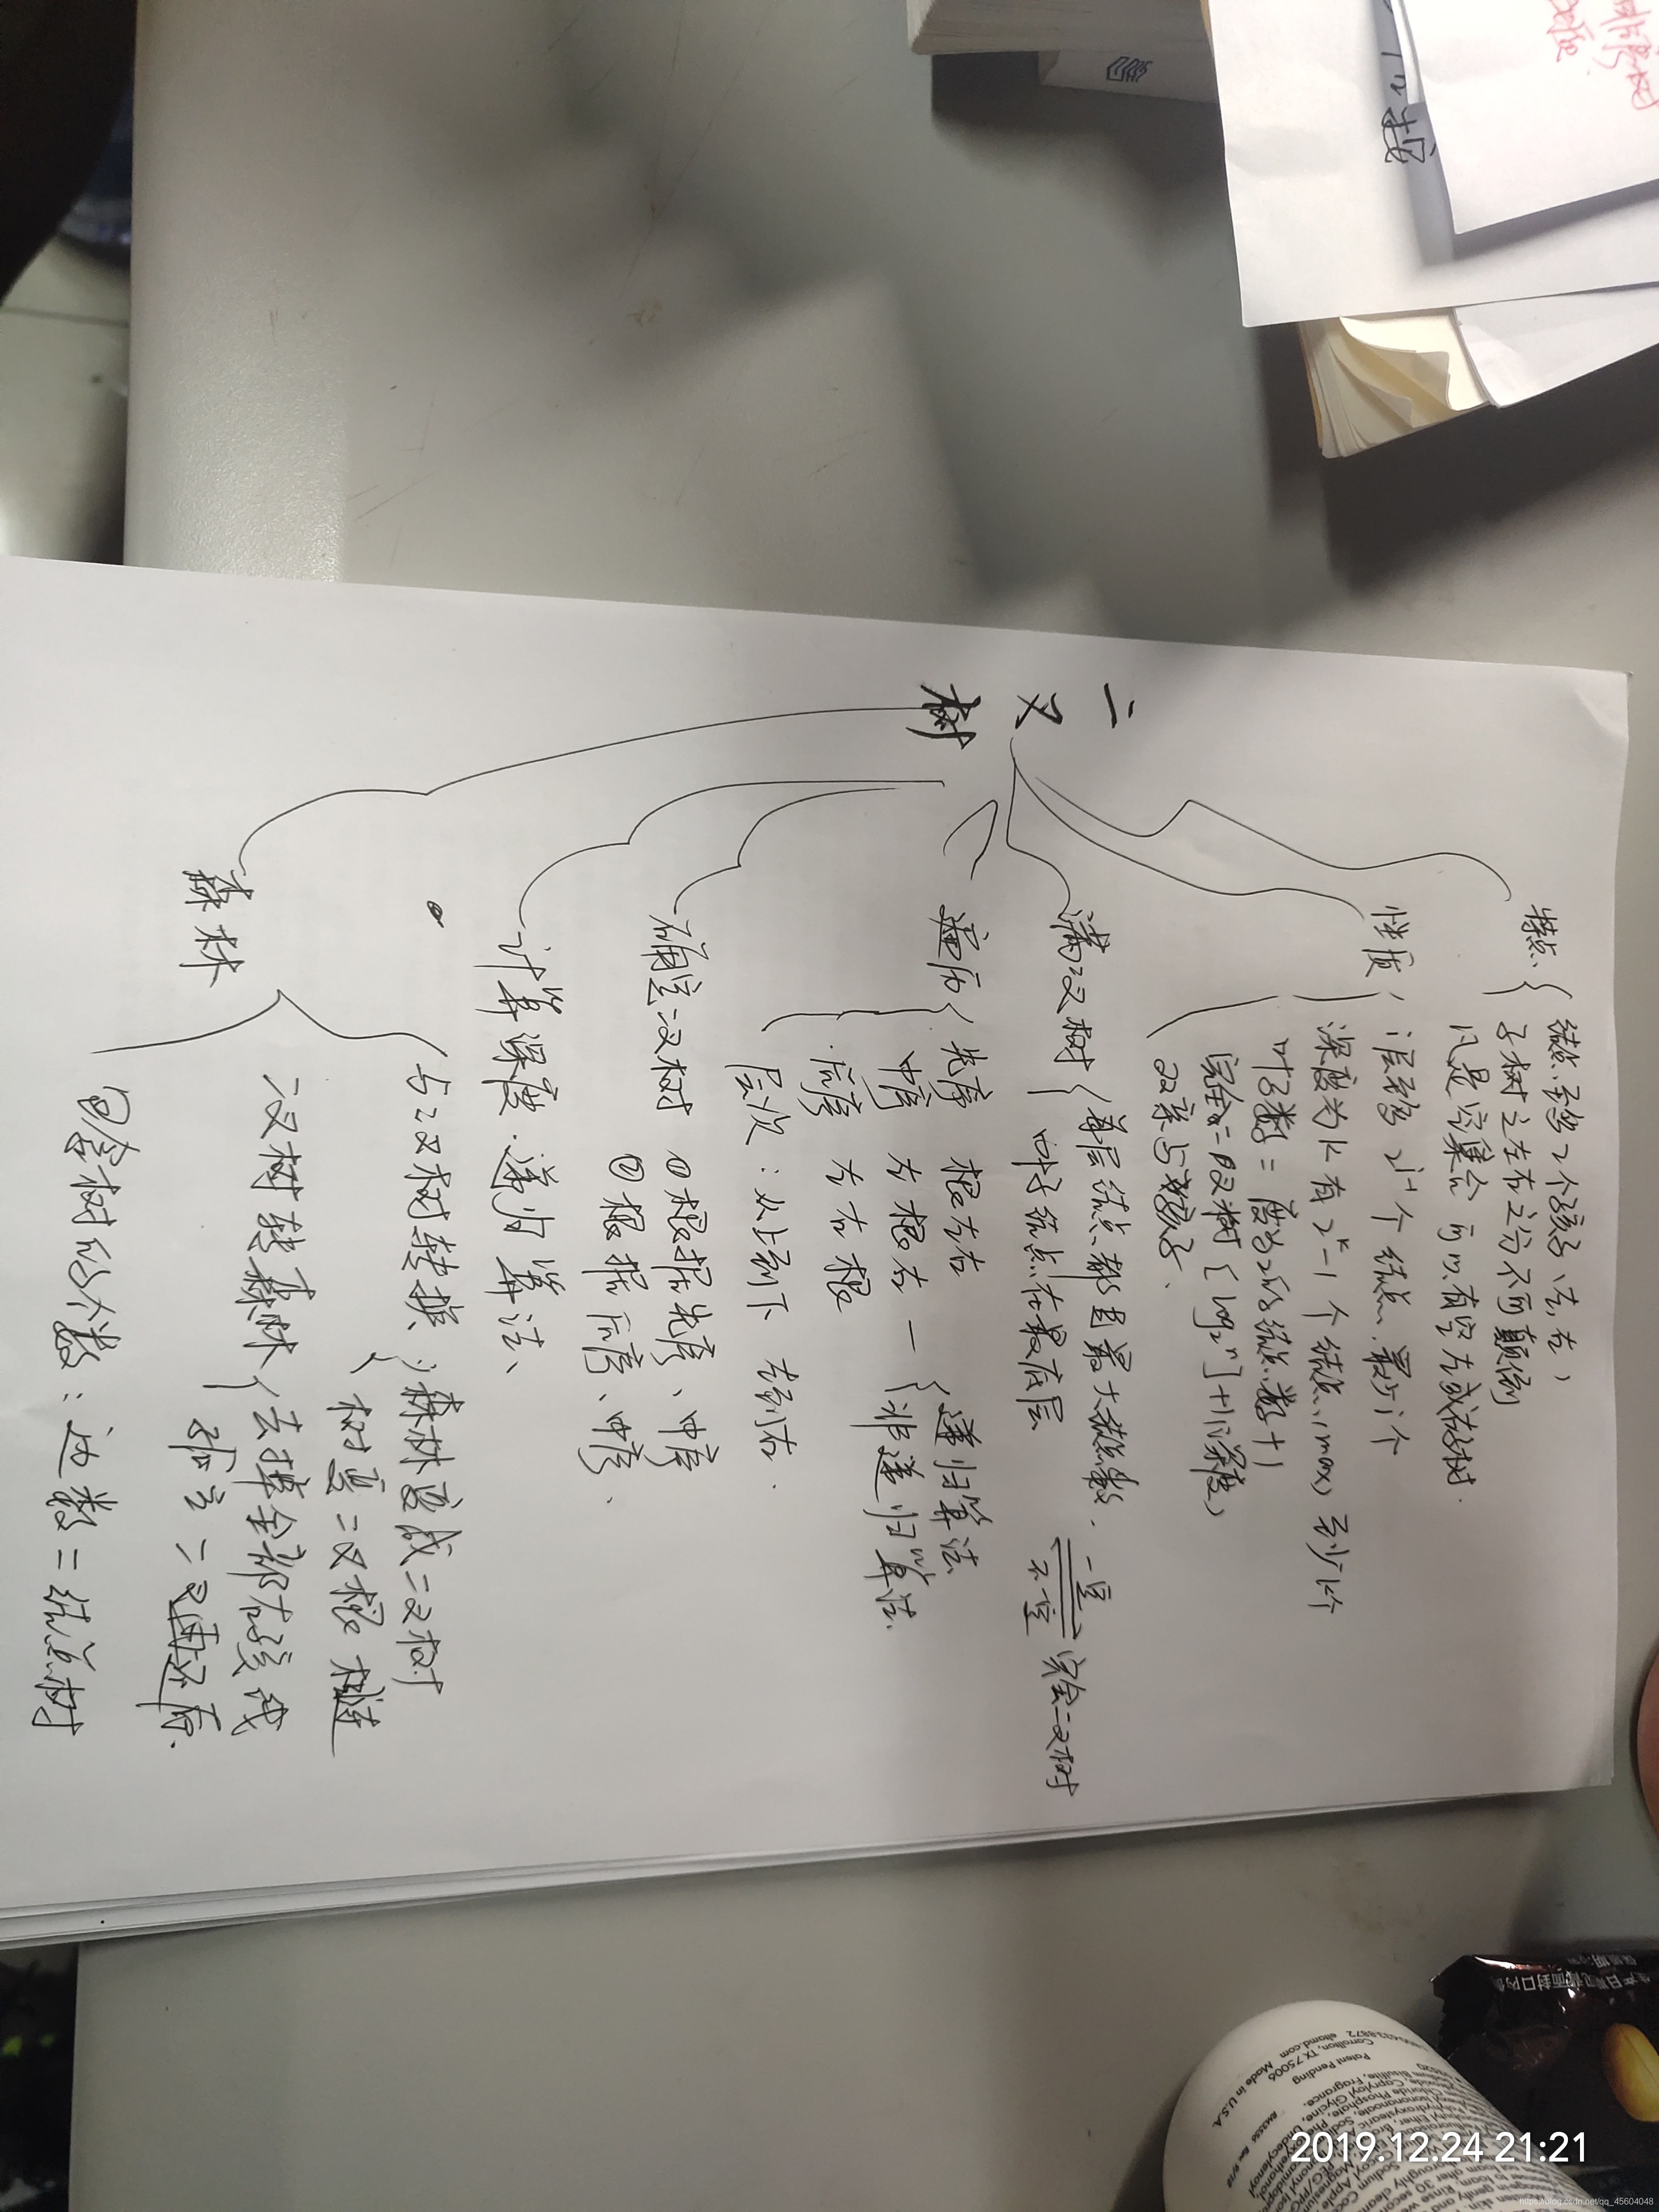 二叉树
特点
结点至多2个孩子(左,右)
子树之左右之分不可颠倒
凡是空集合 可以有空左或右子树
性质
i层至多 2^i-1 个 结点. 最少1个
深度为k 有 2^k-1 个 结点(max) 至少k个
叶子数 = 度为2的结点数+1
完全二叉树 [log2^n]+1(深度)
双亲与孩子.
满二叉树
每层结点都是最大结点数.
叶子结点在最底层
一定
不一定
完全二叉树
遍历
先序 根左右
中序 左根右
后序 左右根
递归算法
非递归算法.
层次:从上到下 左到右.
确定二叉树
①根据先序、中序
②根据后序、中序.
计算深度.递归算法、
森林
与二叉树转换
森林变成二叉树
树变二叉根相连
二叉树转森林
去掉全部右孩线
孤立二叉树还原.
包含树的个数:边数=结点树
2019.12.24 21:21
Carrollton, TX 75006 Made in U.S.A.
Patent Pending
https://blog.csdn.net/qq_45604048